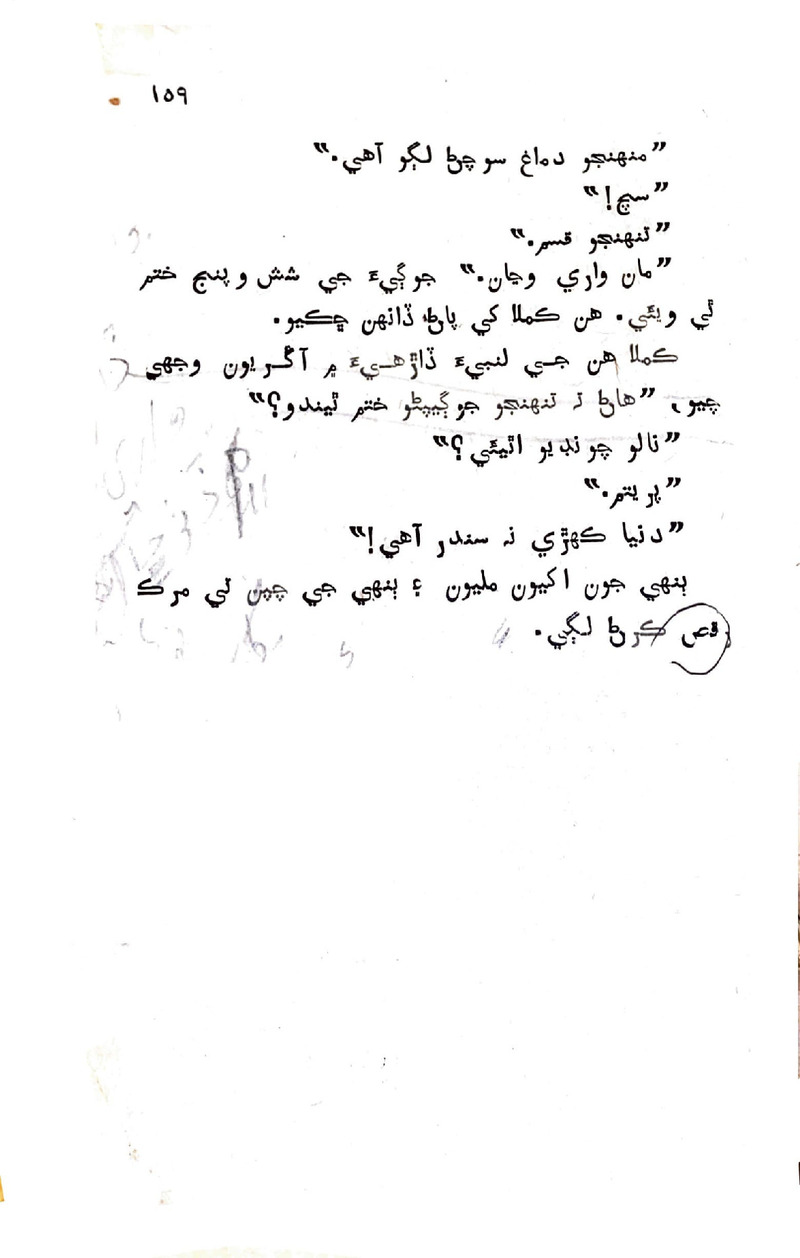 ١٥٩
”منهنجو دماغ سوچڻ لڳو آهي.“
”سچ!“
”تنهنجو قسم.“
”مان واري وڃان.“ جوڳيءَ جي شش و پنج ختم
ٿي ويئي. هن ڪملا کي پاڻ ڏانهن ڇڪيو.
ڪملا هن جي لنبيءَ ڏاڙهيءَ ۾ آڱريون وجهي
چيو، ”هاڻ تہ تنهنجو جوڳيپڻو ختم ٿيندو؟“
”نالو چونڊيو اٿيئي؟“
”پريتم.“
”دنيا ڪهڙي نہ سندر آهي!“
ٻنهي جون اکيون مليون ۽ ٻنهي جي چپن تي مرڪ
رقص ڪرڻ لڳي.